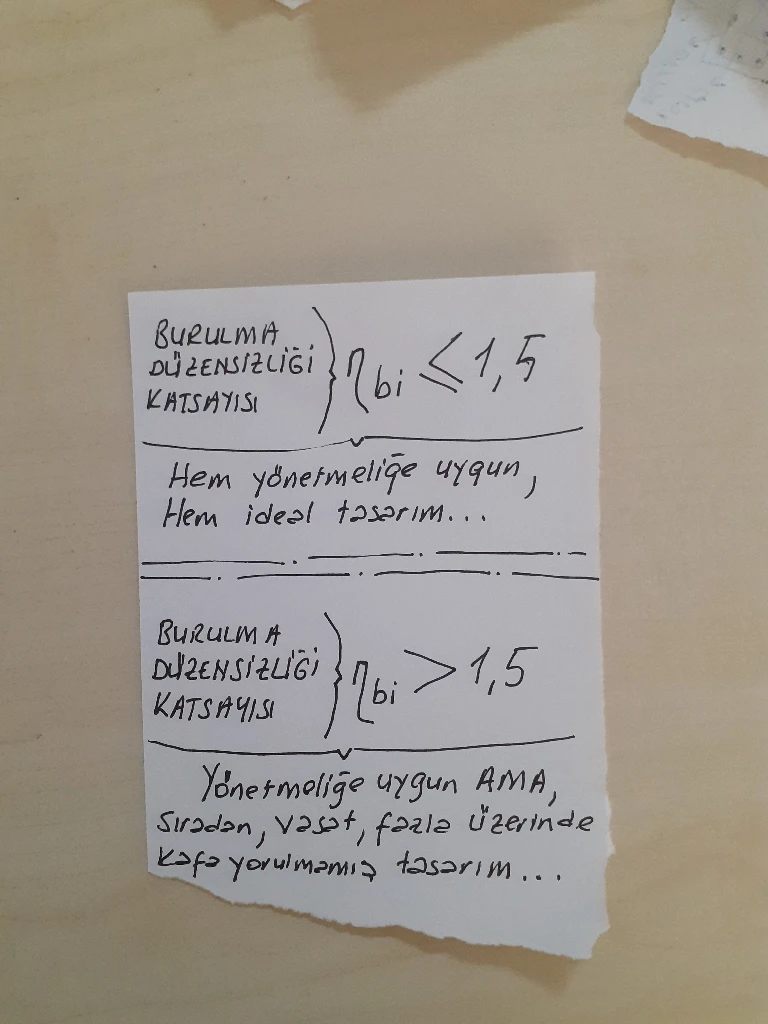 BURULMA
DÜZENSİZLİĞİ
KATSAYISI
ηbi ≤ 1,5
Hem yönetmeliğe uygun,
Hem ideal tasarım...
BURULMA
DÜZENSİZLİĞİ
KATSAYISI
ηbi > 1,5
Yönetmeliğe uygun AMA,
sıradan, vasat, fazla üzerinde
kafa yorulmamış tasarım...